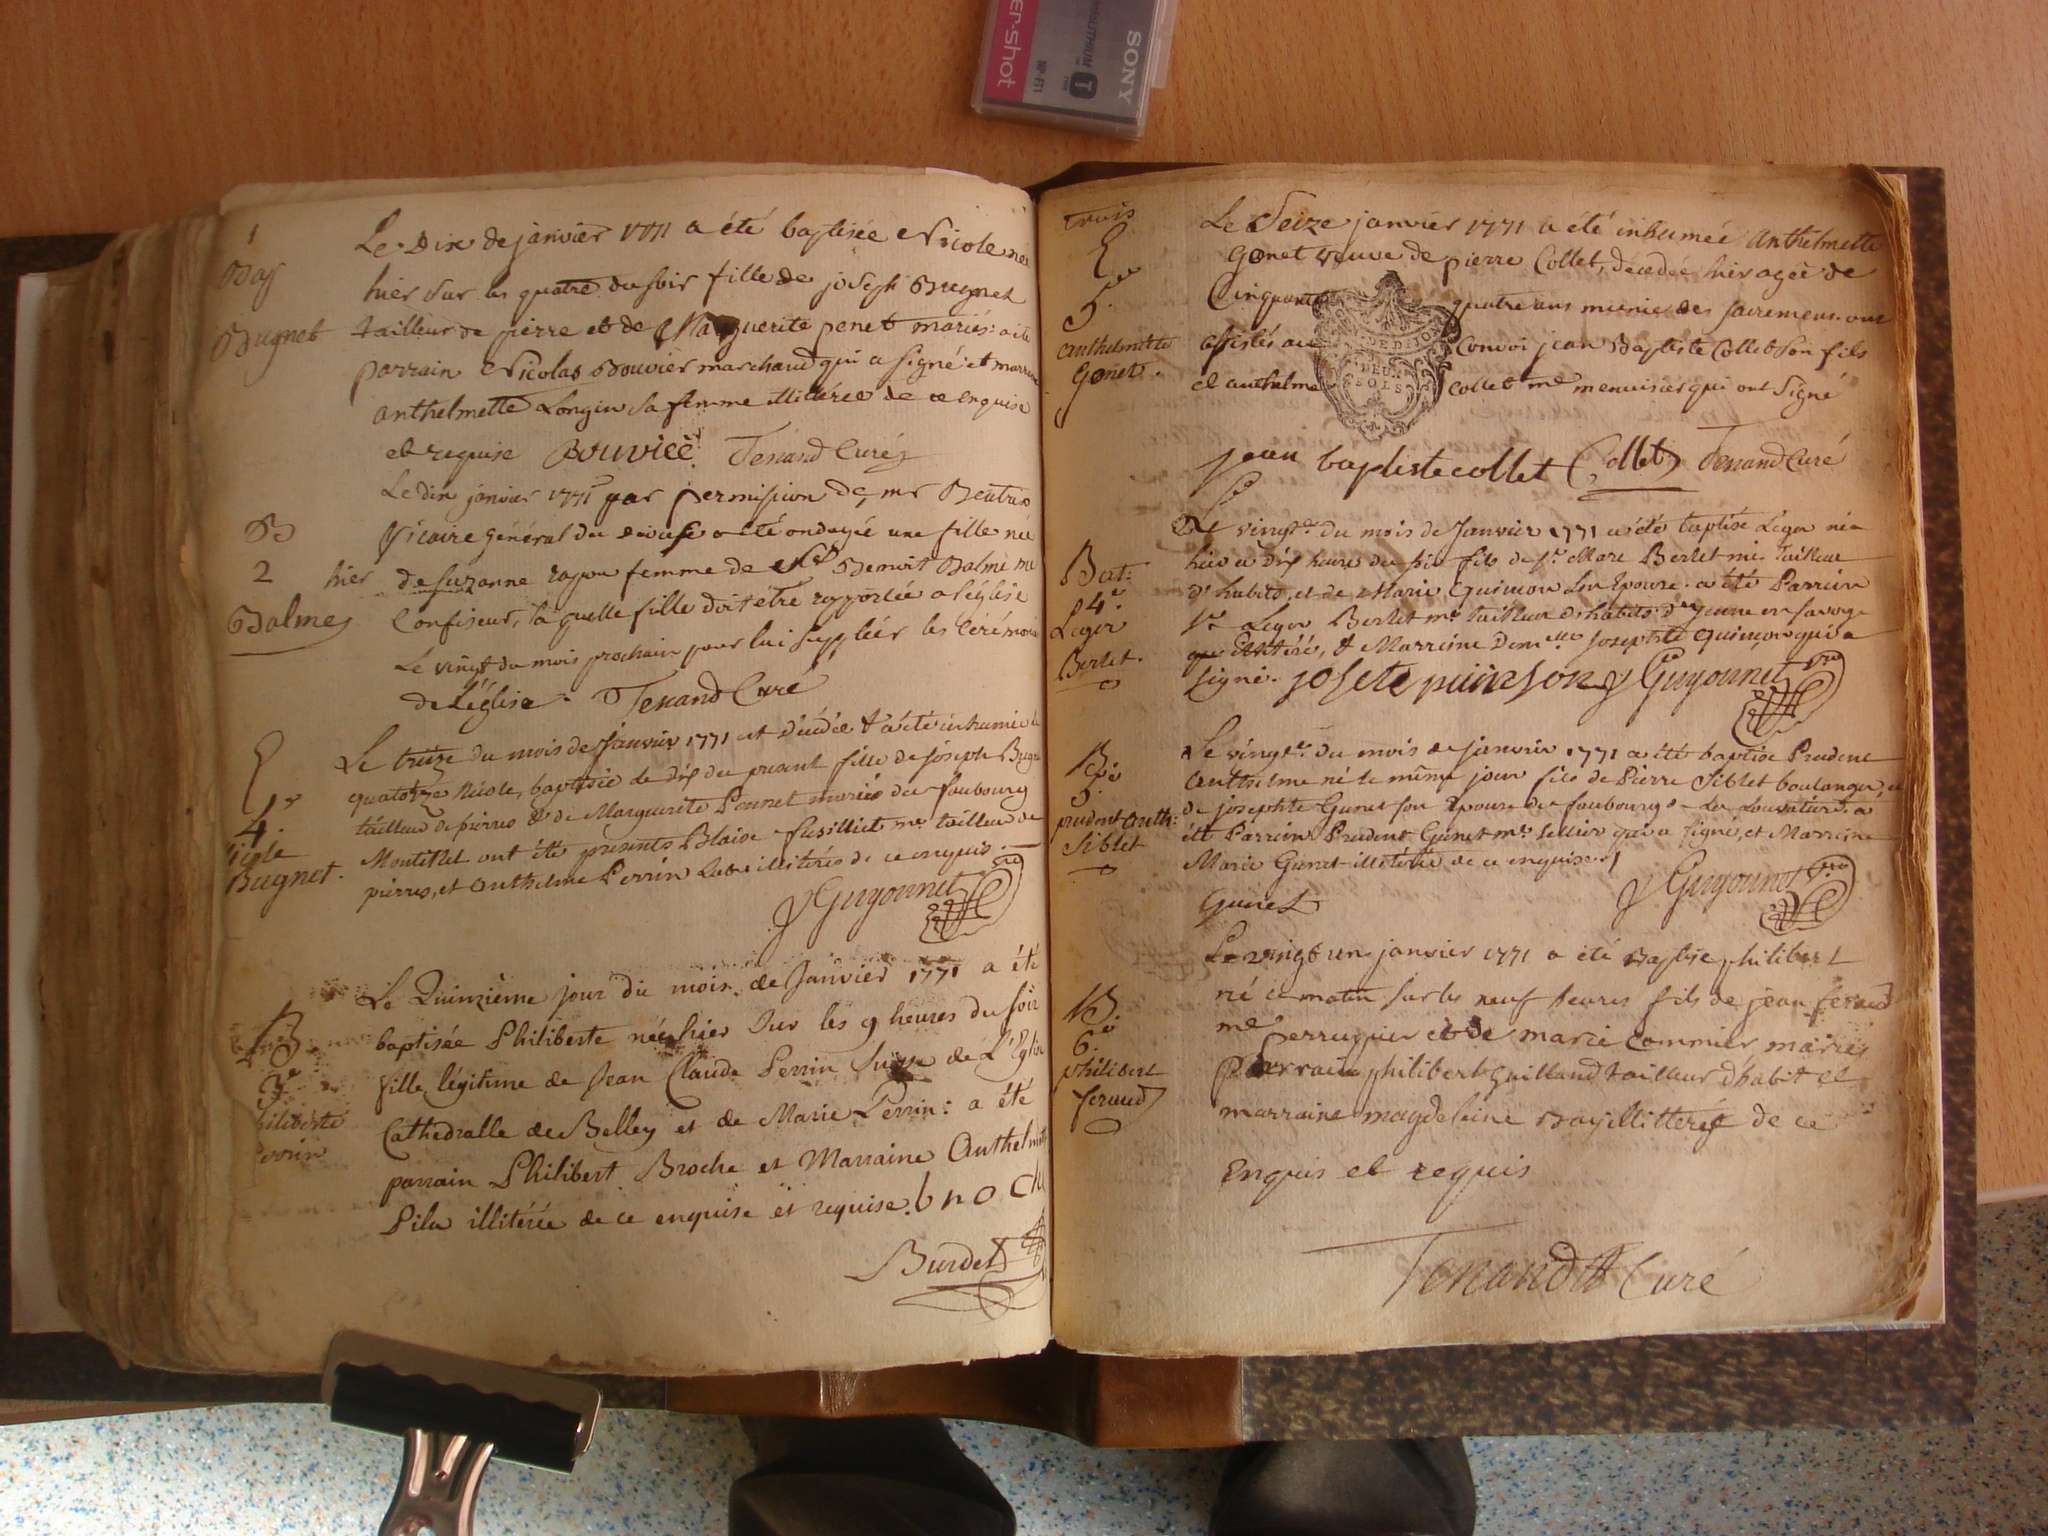 SONY
1
Bap
Bugnet
Le Dix de janvier 1771 a été baptisée Nicole née
hier sur les quatre du soir fille de joseph Bugnet
tailleur de pierre et de Marguerite penet mariés: a été
parrain Nicolas Bouvier marchand qui a signé et marraine
anthelmette Longin sa femme illitérée de ce enquise
et requise Bouvier Tenand Curé
B
2
Balme
Le dix janvier 1771 par permission de mr
Vicaire général du diocese a été ondoyée une fille née
hier de suzanne femme de Benoit Balme me
Confiseur, la quelle fille doit être rapportée a l'église
Le vingt du mois prochain pour lui suppléér les cérémonies
de L'église. Tenand Curé
4.
Nicole
Bugnet.
Le treize du mois de Janvier 1771 est décédée & a été inhumée le
quatorze Nicole, baptisée le dix du present fille de joseph Bugnet
tailleur de pierres & de Marguerite Pennet mariés du faubourg
ont été presents Blaise me tailleur de
pierres, et Anthelme Perrin illiterés de ce enquis.
Guyonnet
B
3e
Philiberte
Perrin
Le Quinzième jour du mois de Janvier 1771 a été
baptisée Philiberte née hier sur les 9 heures du soir
fille légitime de Jean Claude Perrin Suisse de L'Eglise
Cathedralle de Belley et de Marie Perrin: a été
parrain Philibert Broche et Marraine Anthelmette
Pila illitérée de ce enquise et requise. broche
Burdet
trois
5.e
anthelmette
Gonet.
Le Seize janvier 1771 a été inhumée anthelmette
Gonet veuve de pierre Collet, décedée hier agée de
Cinquante quatre ans munie des sacremens. ont
assistés au Convoi jean Baptiste Collet son fils
et anthelme Collet me menuisier qui ont Signé
DEUX
SOLS
jean baptiste collet Collet Tenand Curé
Bat:
4e.
Leger
Berlet.
Le vingt du mois de Janvier 1771 a été baptisé Leger né
hier a dix heure du soir fils de sr. Marc Berlet me. Tailleur
d'habits, et de Marie Guinson son Epouse. a été Parrain
sr Leger Berlet me. tailleur d'habits
& Marraine Demelle Josephte qui a
signé. Guyonnet
B
5.
prudent anth:
Siblet
Le vingt. du mois de Janvier 1771 a été baptisé Prudent
Anthelme né le même jour fils de Pierre Siblet boulanger, et
de josephte Gunet son Epouse du faubourg a
été Parrain Prudent Gunet me. sellier qui a signé, et Marraine
Marie Gunet illitérée de ce enquise.
Gunet Guyonnet
B
6.
philibert
feraud
Le vingt un janvier 1771 a été Baptisé philibert
né ce matin sur les neuf heures fils de jean feraud
me perruquier et de marie Commier mariés
parrain philibert Gailland tailleur d'habit et
marraine magdeleine Bay illitterés de ce
Enquis et requis
Tenand Curé